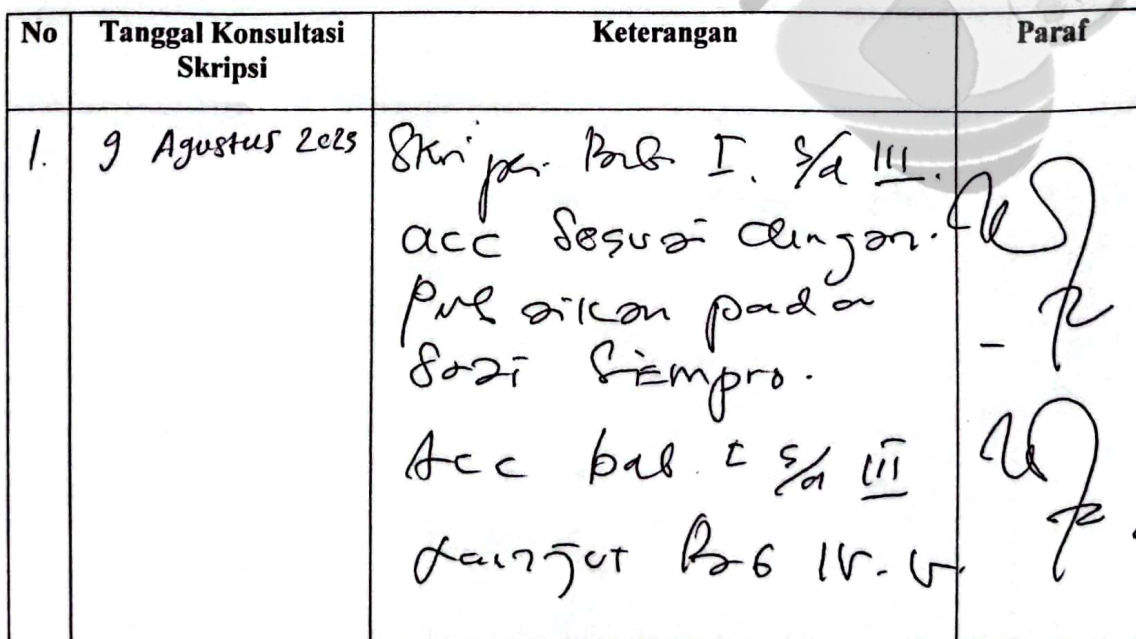 No Tanggal Konsultasi Skripsi Keterangan Paraf
1. 9 Agustus 2025 Skripsi Bab I. s/d III.
acc Sesuai dengan.
pada
Sempro.
Acc bab I s/d III
Lanjut Bab IV-V